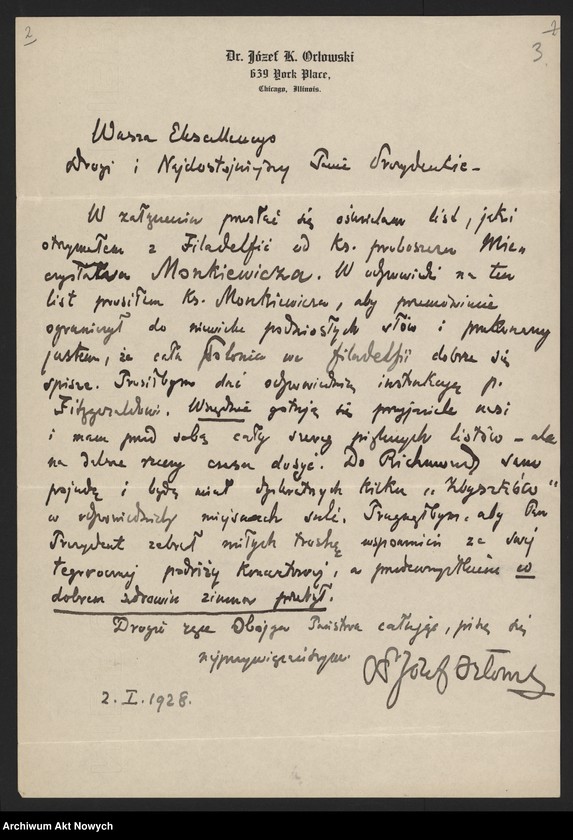 2
7
3.
Dr. Józef K. Orłowski
639 York Place,
Chicago, Illinois.
Wasza Ekscellencyo
Drogi i Najdostojniejszy Panie Prezydencie –
W załączeniu przesłać się ośmielam list, jaki
otrzymałem z Filadelfii od Ks. proboszcza Mie-
czysława Monkiewicza. W odpowiedzi na ten
list prosiłem Ks. Monkiewicza, aby przemówienie
ograniczył do niewielu podniosłych słów i przekonany
jestem, że cała Polonia we Filadelfii dobrze się
spisze. Prosiłbym dać odpowiednią instrukcyę p.
Fitzgeraldowi. Wszędzie gotują się przyjaciele nasi
i mam przed sobą cały szereg pięknych listów – ale
na dalsze rzeczy czasu dosyć. Do Richmond sam
pojadę i będę miał dyskretnych kilku „Zbyszków"
w odpowiednich miejscach sali. Pragnąłbym, aby Pan
Prezydent zebrał miłych trochę wspomnień ze swej
tegorocznej podróży koncertowej, a przedewszystkiem w
dobrem zdrowiu zimna przebył.
Drogie ręce Obojga Państwa całując, piszę się
najprzywiązańszym
Dr Józef Orłowski
2. I. 1928.
Archiwum Akt Nowych